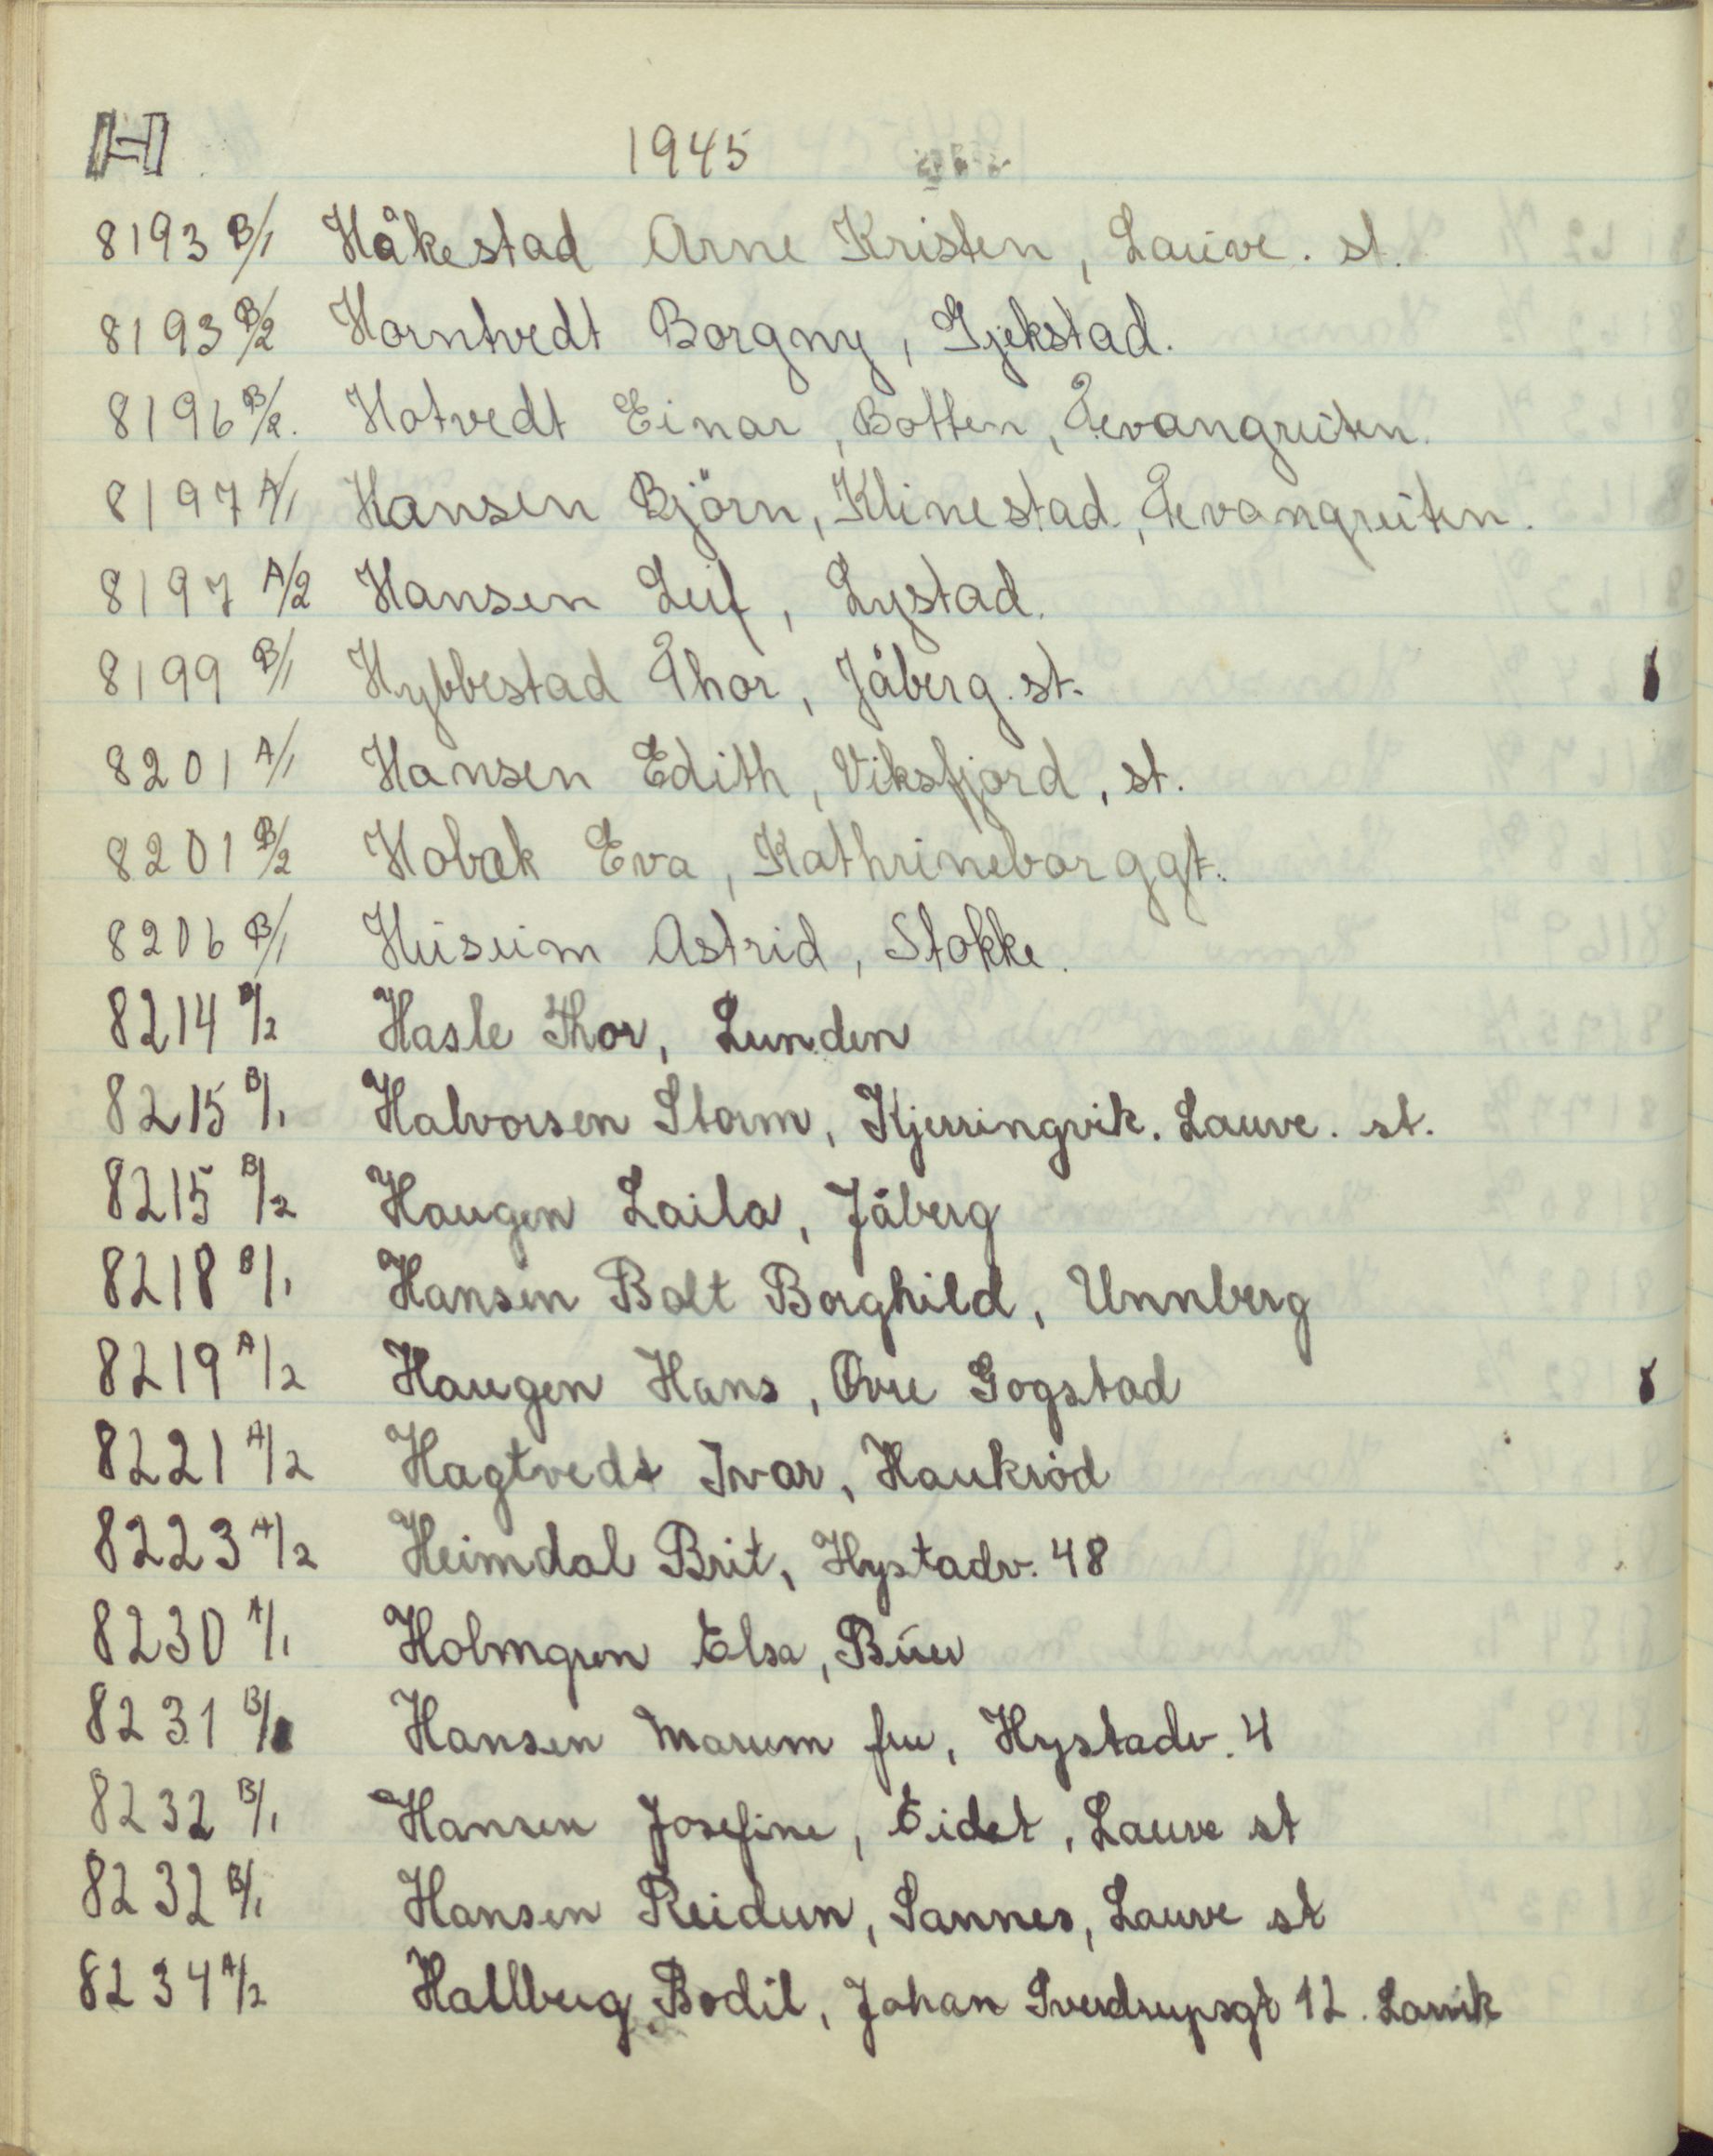 H 1945
8193 B/1 Håkestad Arne Kristen, Lauve. st.
8193 B/2 Horntvedt Borgny, Gjekstad.
8196 B/2. Hotvedt Einar, Botten, Tevangruten.
8197 A/1 Hansen Björn, Klinestad, Tevangruten.
8197 A/2 Hansen Leif, Lystad.
8199 B/1 Hybbestad Thor, Jåberg. st.
8201 A/1 Hansen Edith, Viksfjord, st.
8201 B/2 Hobæk Eva, Kathrineborggt.
8206 B/1 Husum Astrid, Stokke.
8214 B/2 Hasle Thor, Lunden
8215 B/1 Halvorsen Storm, Kjerringvik. Lauve. st.
8215 B/2 Haugen Laila, Jåberg
8218 B/1 Hansen Bolt Borghild, Unnberg
8219 A/2 Haugen Hans, Övre Gogstad
8221 A/2 Hagtvedt Ivar, Haukröd
8223 A/2 Heimdal Brit, Hystadv. 48
8230 A/1 Holmgren Elsa, Buer
8231 B/1 Hansen Marum fru, Hystadv. 4
8232 B/1 Hansen Josefine, Eidet, Lauve st
8232 B/1 Hansen Reidun, Sannes, Lauve st
8234 A/2 Hallberg Bodil, Johan Sverdrupsgt 12. Larvik